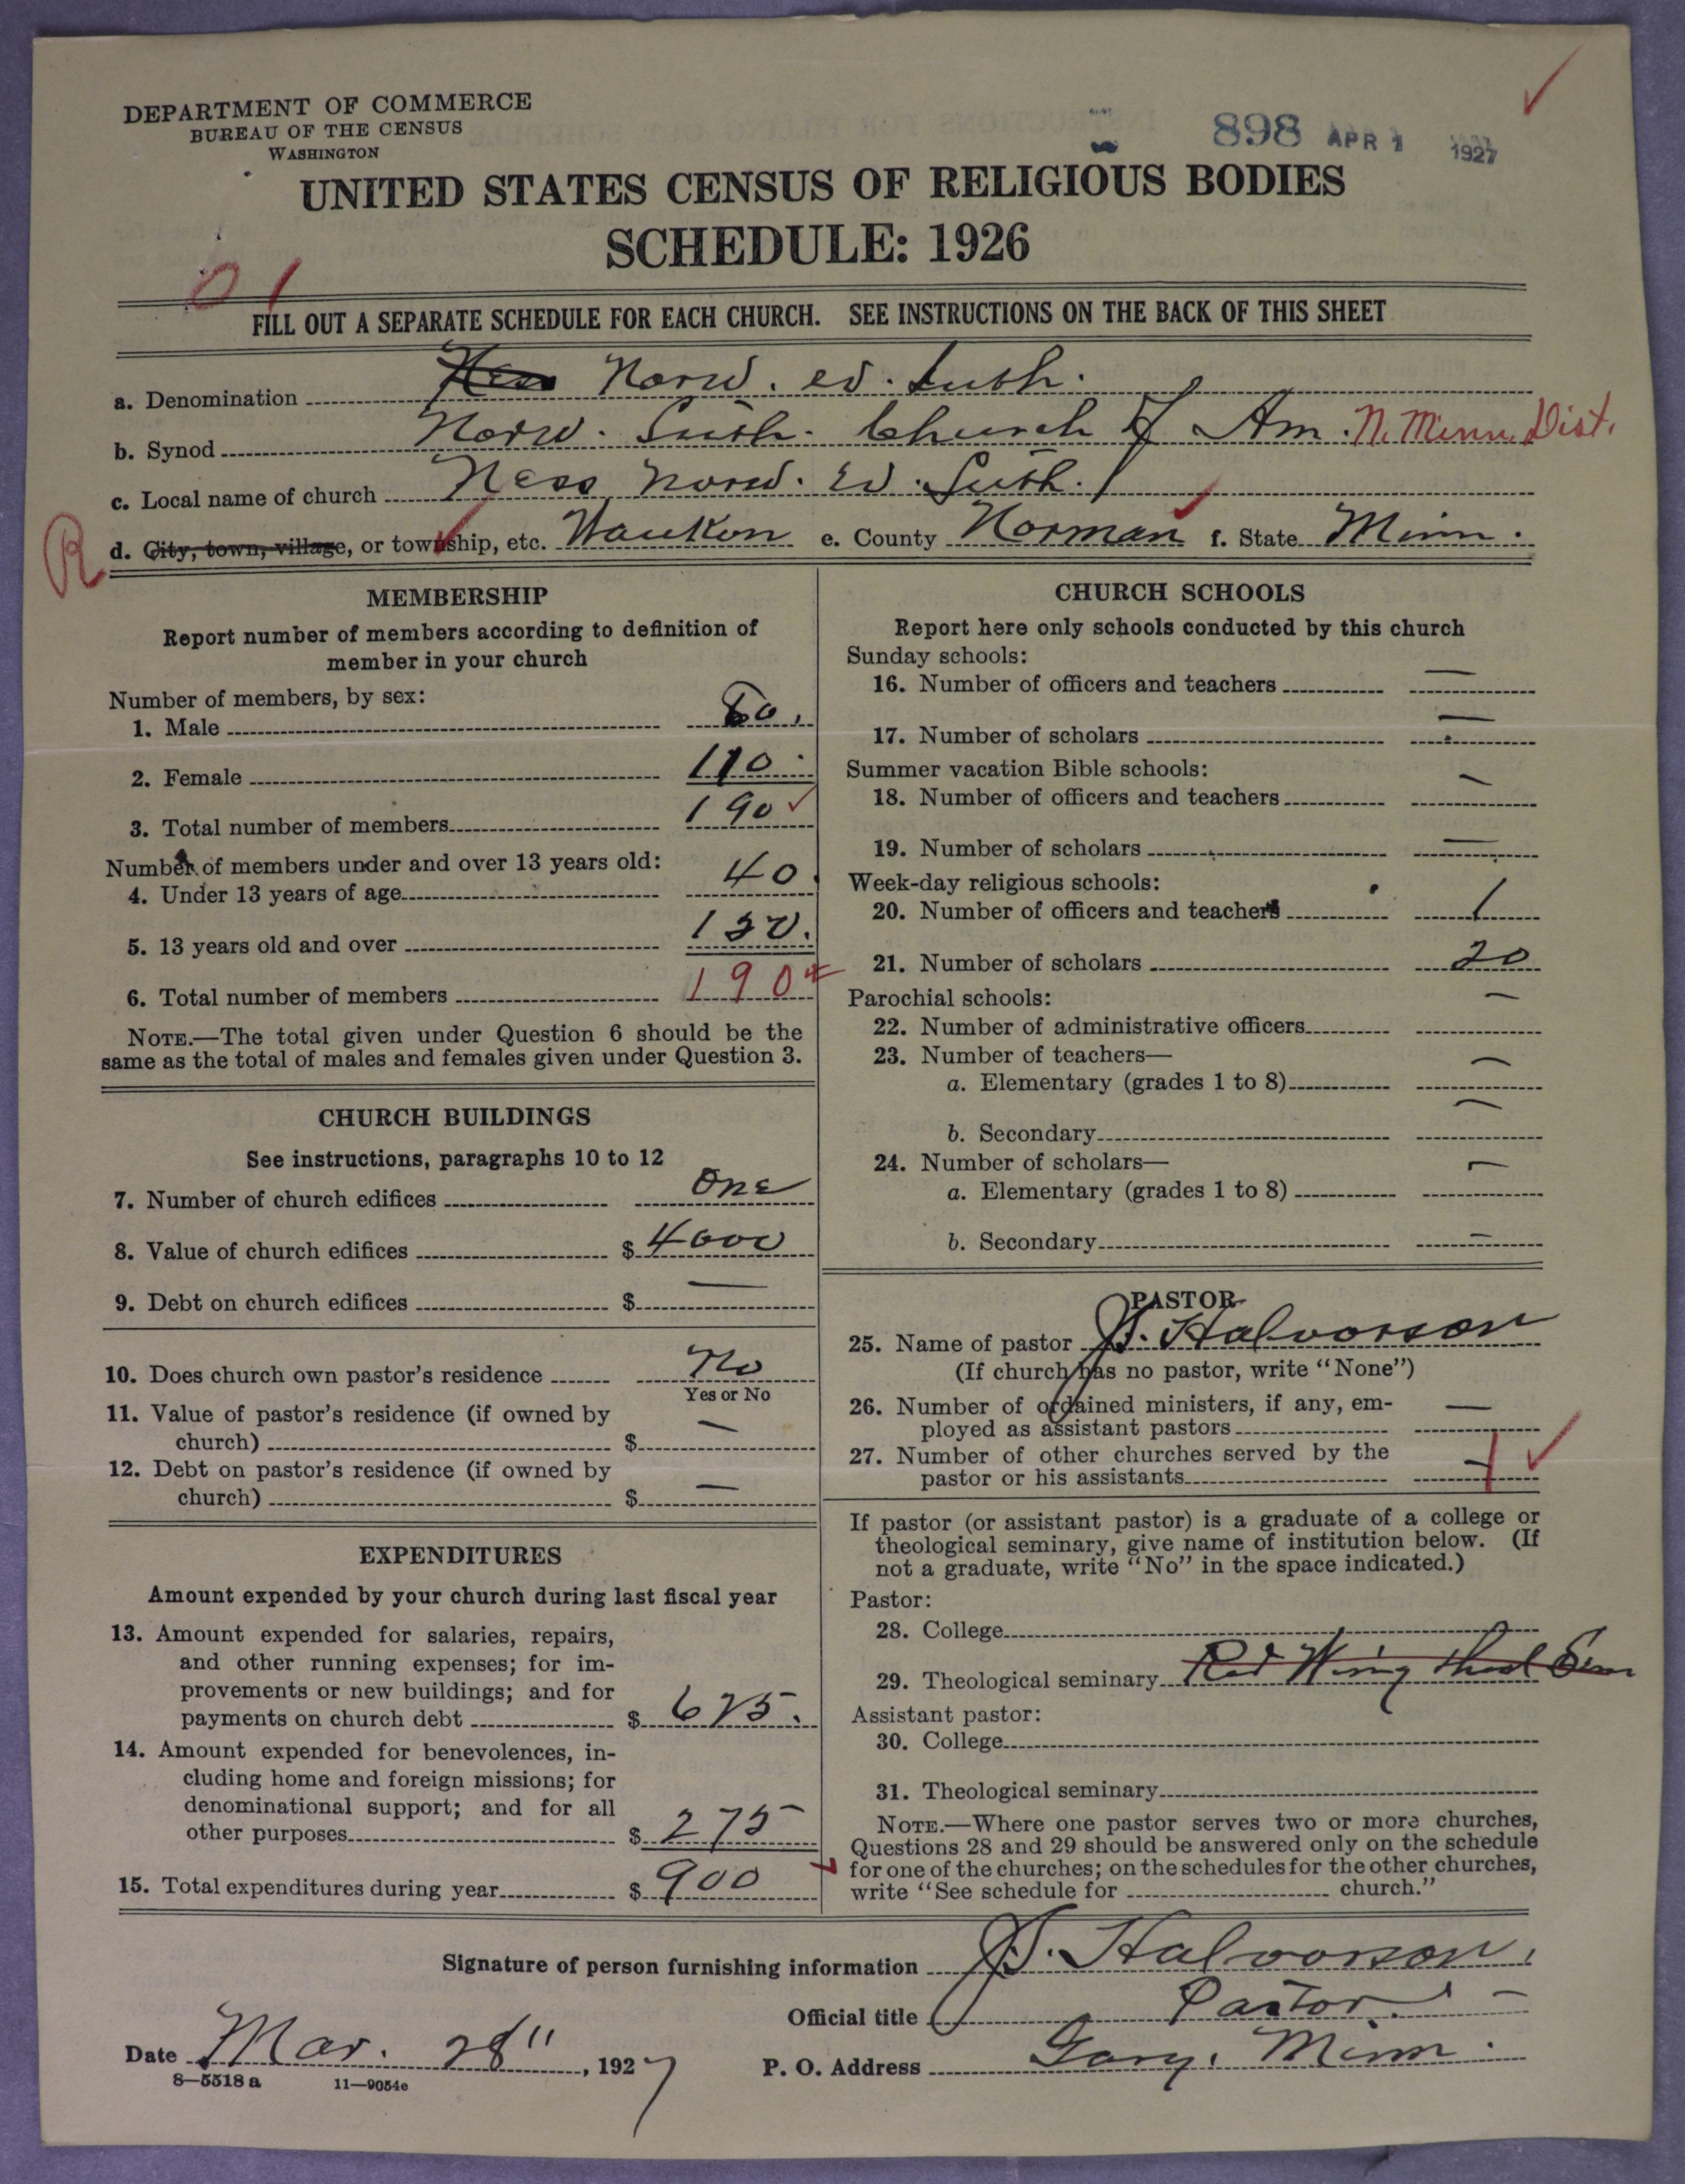 DEPARTMENT OF COMMERCE
BUREAU OF THE CENSUS
WASHINGTON
898 APR 1 1927
UNITED STATES CENSUS OF RELIGIOUS BODIES
SCHEDULE: 1926
01
FILL OUT A SEPARATE SCHEDULE FOR EACH CHURCH. SEE INSTRUCTIONS ON THE BACK OF THIS SHEET
a. Denomination Ness Norw. Ev. Luth.
b. Synod Norw. Luth. Church of Am. N. Minn. Dist.
c. Local name of church Ness Norw. Ev. Luth.
R d. City, town, village, or township, etc. Waukon e. County Norman f. State Minn.
MEMBERSHIP
Report number of members according to definition of
member in your church
Number of members, by sex:
1. Male 80.
2. Female 110
3. Total number of members 190
Number of members under and over 13 years old:
4. Under 13 years of age 40
5. 13 years old and over 150.
6. Total number of members 190
NOTE.—The total given under Question 6 should be the
same as the total of males and females given under Question 3.
CHURCH BUILDINGS
See instructions, paragraphs 10 to 12
7. Number of church edifices One
8. Value of church edifices $ 4000
9. Debt on church edifices $ —
10. Does church own pastor's residence No
Yes or No
11. Value of pastor's residence (if owned by
church) $ —
12. Debt on pastor's residence (if owned by
church) $ —
EXPENDITURES
Amount expended by your church during last fiscal year
13. Amount expended for salaries, repairs,
and other running expenses; for im-
provements or new buildings; and for
payments on church debt $ 625.
14. Amount expended for benevolences, in-
cluding home and foreign missions; for
denominational support; and for all
other purposes $ 275
15. Total expenditures during year $ 900
CHURCH SCHOOLS
Report here only schools conducted by this church
Sunday schools:
16. Number of officers and teachers —
17. Number of scholars —
Summer vacation Bible schools:
18. Number of officers and teachers —
19. Number of scholars —
Week-day religious schools:
20. Number of officers and teachers 1
21. Number of scholars 20
Parochial schools:
22. Number of administrative officers —
23. Number of teachers—
a. Elementary (grades 1 to 8) —
b. Secondary —
24. Number of scholars—
a. Elementary (grades 1 to 8) —
b. Secondary —
PASTOR
25. Name of pastor J. Halvorson
(If church has no pastor, write "None")
26. Number of ordained ministers, if any, em-
ployed as assistant pastors —
27. Number of other churches served by the
pastor or his assistants 1
If pastor (or assistant pastor) is a graduate of a college or
theological seminary, give name of institution below. (If
not a graduate, write "No" in the space indicated.)
Pastor:
28. College
29. Theological seminary Red Wing Theol Sem
Assistant pastor:
30. College
31. Theological seminary
NOTE.—Where one pastor serves two or more churches,
Questions 28 and 29 should be answered only on the schedule
for one of the churches; on the schedules for the other churches,
write "See schedule for church."
Signature of person furnishing information J. Halvorson.
Official title Pastor.
Date Mar. 28", 1927 P. O. Address Gary, Minn.
8—5518 a 11—9054e